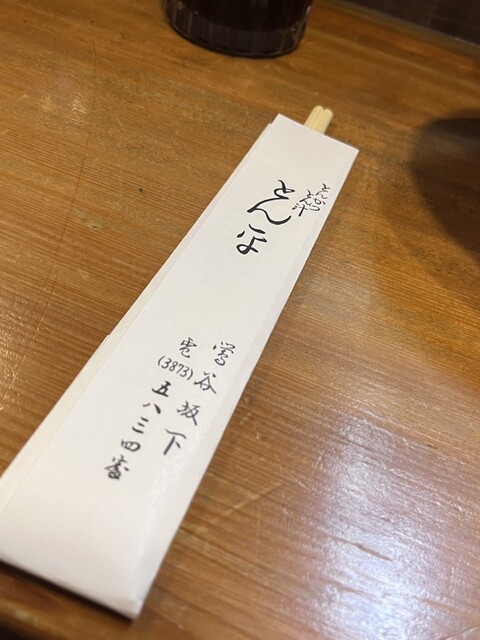 とんかつ
とん汁
とん平
鶯谷坂下
電(3873)五八三四番